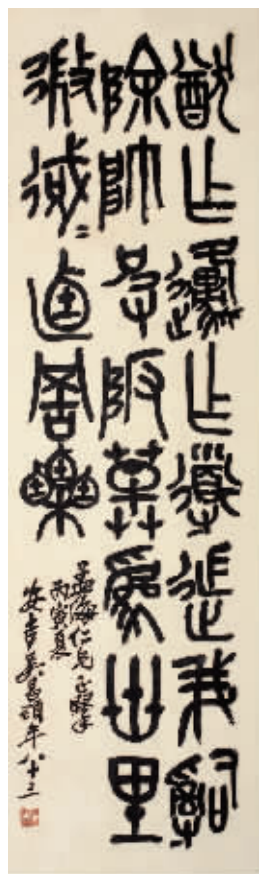 猷乍邍乍導遄我嗣
除帥皮阪草為卅里
微逌罟栗
仁兄正
丙寅夏
安吉吳昌碩年八十三